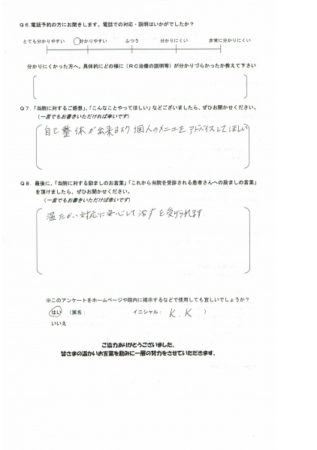 Q6.電話予約の方にお聞きします。電話での対応・説明はいかがでしたか?
とても分かりやすい 分かりやすい ふつう 分かりにくい 非常に分かりにくい
分かりにくかった方へ、具体的にどの様に(RC治療の説明等)が分かりづらかったか教えて下さい
Q7.「当院に対するご感想」、「こんなことやってほしい」などございましたら、ぜひお聞かせください。
(一言でもお書きいただければ幸いです)
自己整体が出来るよう個人のメニューをアドバイスしてほしい
Q8.最後に、「当院に対する励ましのお言葉」「これから当院を受診される患者さんへの励ましの言葉」
を頂けましたら、ぜひお聞かせください。
(一言でもお書きいただければ幸いです)
温たかい対応に安心して治す を受けられます
※このアンケートをホームページや院内に掲示するなどで使用しても宜しいでしょうか?
はい (実名: イニシャル: K.K )
いいえ
ご協力ありがとうございました。
皆さまの温かいお言葉を励みに一層の努力をさせていただきます。